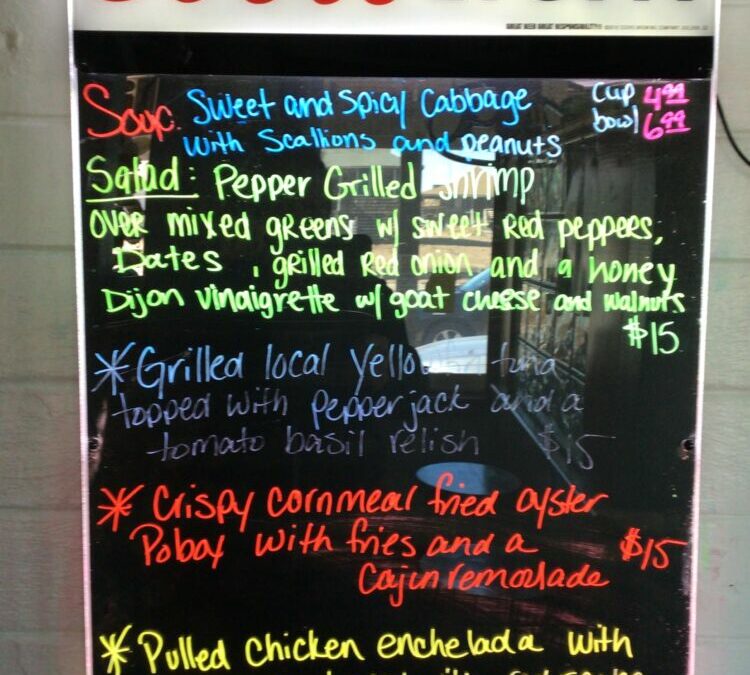 GREAT BEER GREAT RESPONSIBILITY
Soup: Sweet and Spicy Cabbage cup 4.99
with Scallions and peanuts bowl 6.99
Salad: Pepper Grilled Shrimp
over mixed greens w/ sweet Red peppers,
Dates, grilled Red onion and a honey
Dijon vinaigrette w/ goat cheese and walnuts
$15
* Grilled local Yellowfin tuna
topped with pepperjack and a
tomato basil relish $15
* Crispy cornmeal fried oyster
Poboy with fries and a $15
Cajun remoulade
* Pulled chicken enchelada with